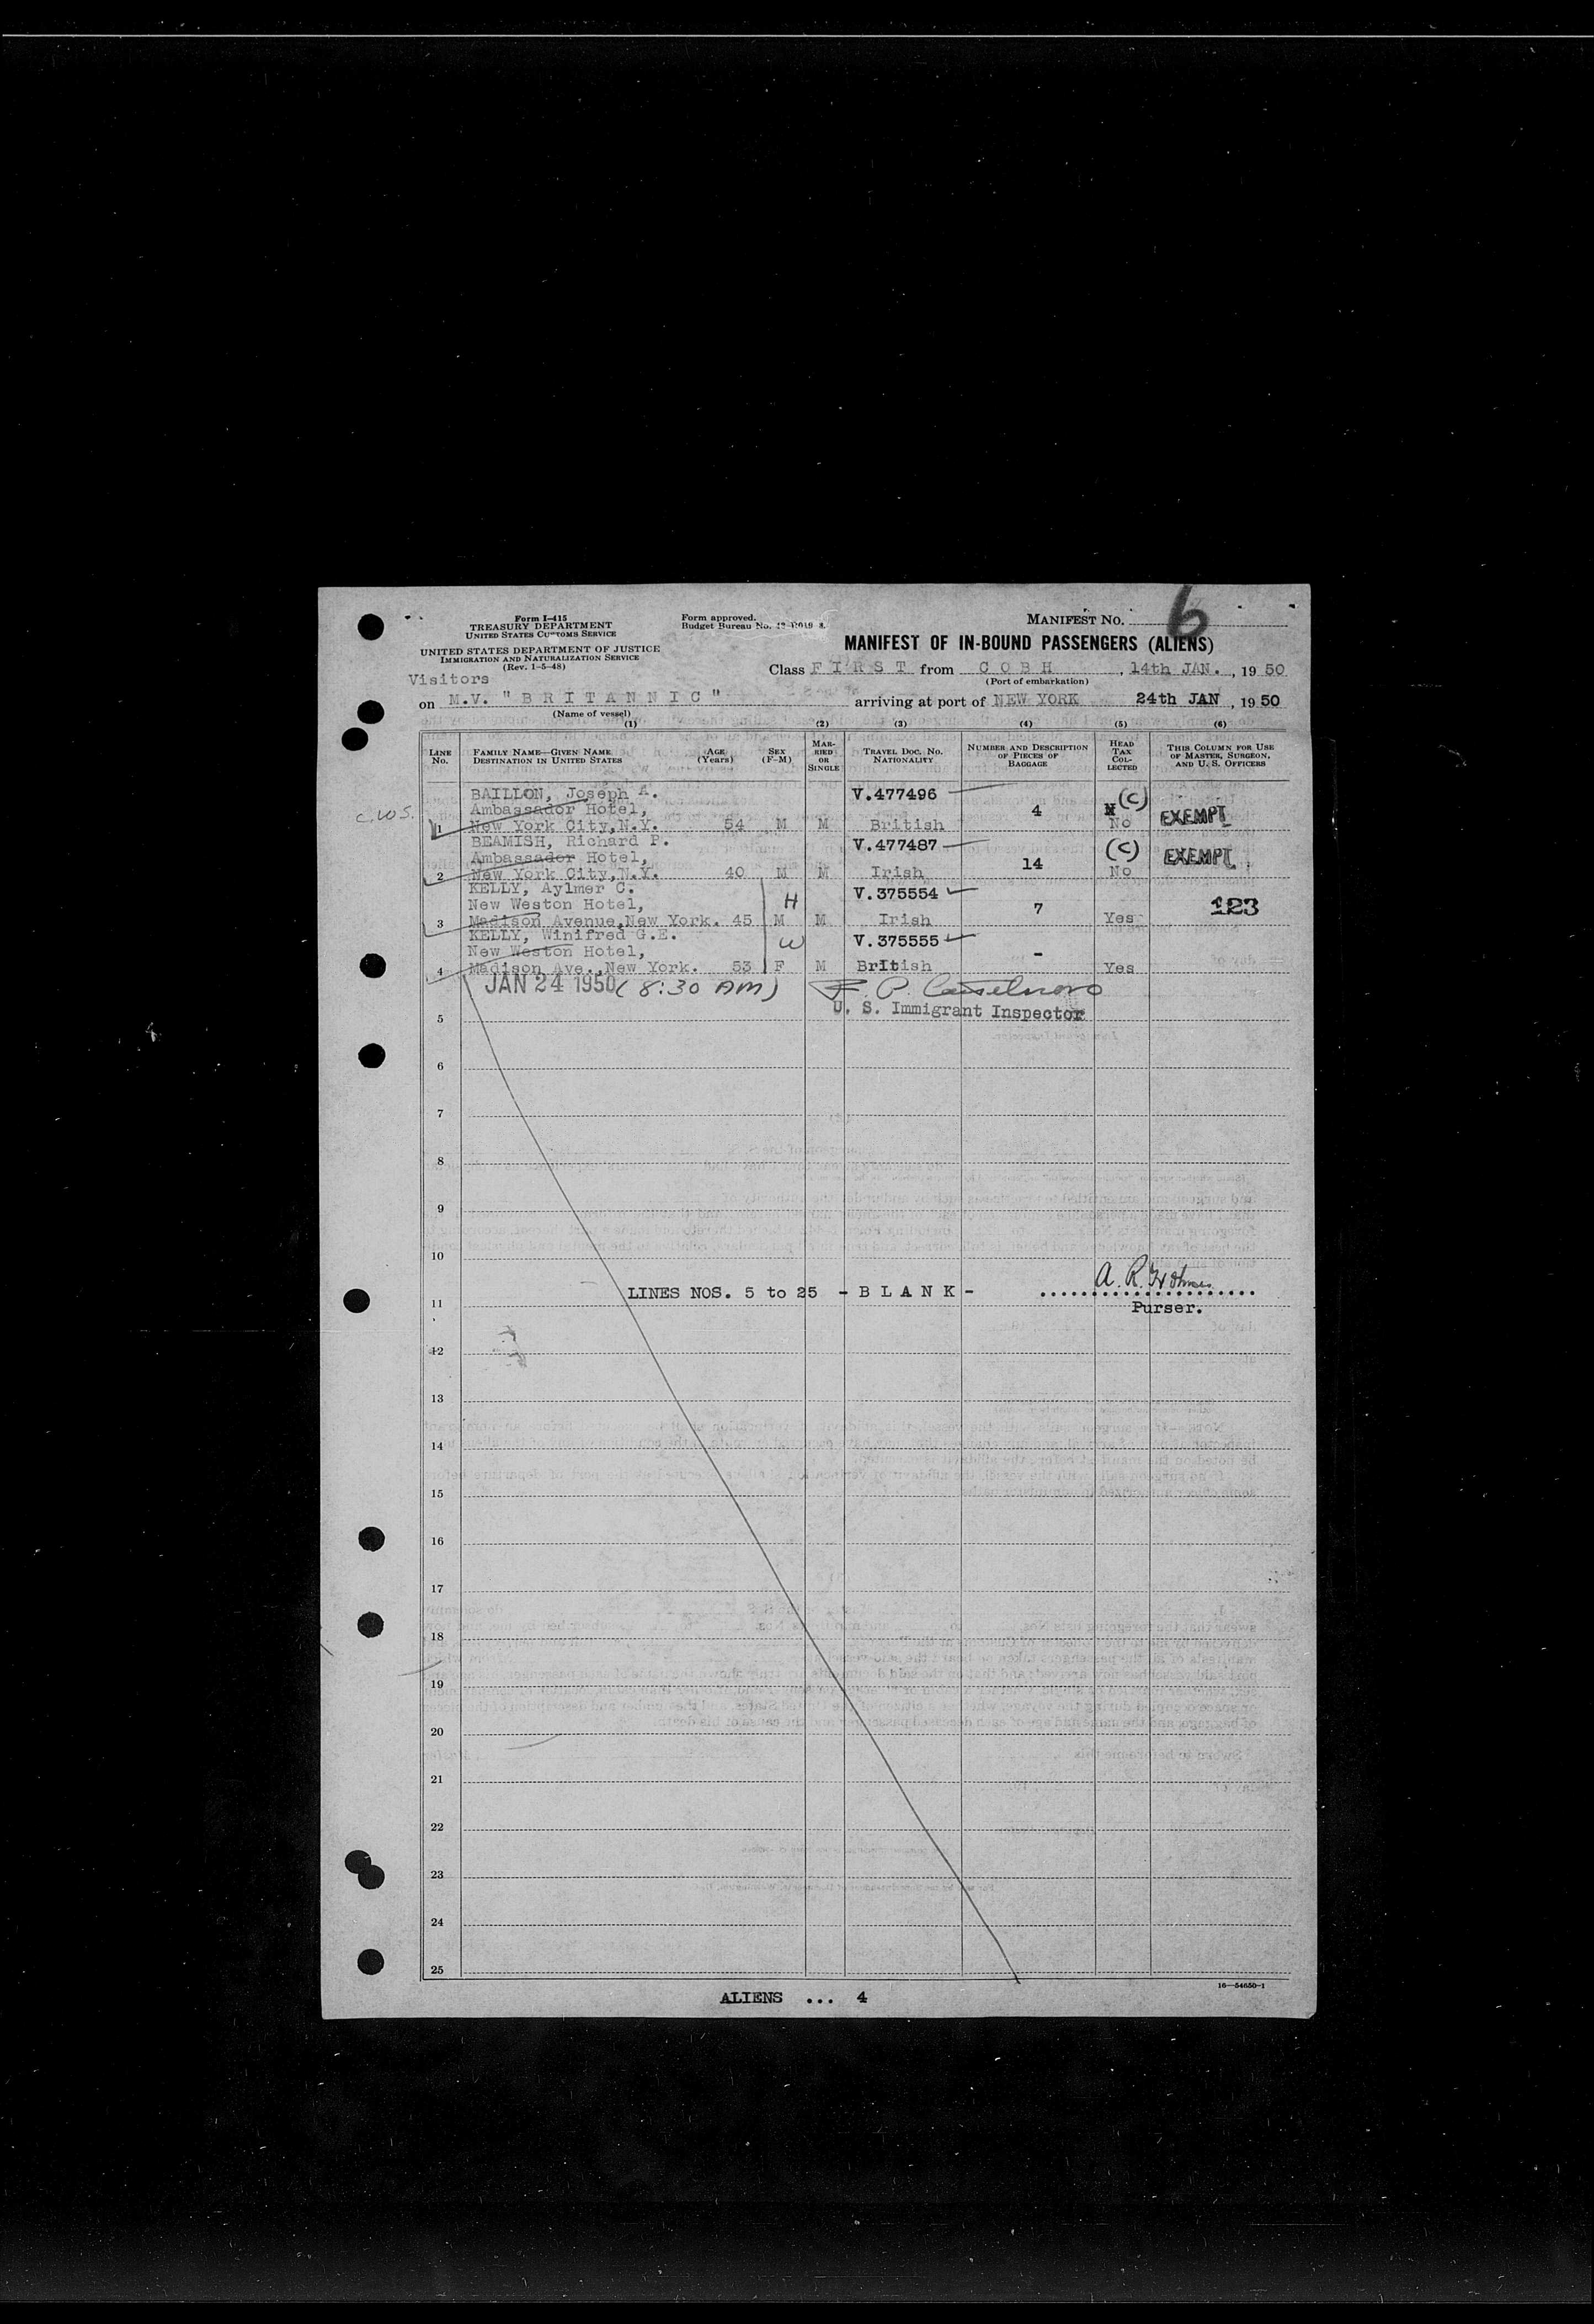 Form I-415
TREASURY DEPARTMENT
UNITED STATES CUSTOMS SERVICE
UNITED STATES DEPARTMENT OF JUSTICE
IMMIGRATION AND NATURALIZATION SERVICE
(Rev. 1-5-48)
Form approved.
Budget Bureau No.
MANIFEST NO. 6
MANIFEST OF IN-BOUND PASSENGERS (ALIENS)
Visitors
Class FIRST from COBH, 14th JAN., 1950
(Port of embarkation)
on M.V. "BRITANNIC" arriving at port of NEW YORK 24th JAN, 1950
(Name of vessel)
(1) (2) (3) (4) (5) (6)
LINE NO. FAMILY NAME—GIVEN NAME DESTINATION IN UNITED STATES AGE (Years) SEX (F-M) MARRIED OR SINGLE TRAVEL DOC. NO. NATIONALITY NUMBER AND DESCRIPTION OF PIECES OF BAGGAGE HEAD TAX COLLECTED THIS COLUMN FOR USE OF MASTER, SURGEON, AND U. S. OFFICERS
BAILLON, Joseph A. V.477496
c.w.s. Ambassador Hotel, 4 (C) EXEMPT
1 New York City,N.Y. 54 M M British No
BEAMISH, Richard P. V.477487
Ambassador Hotel, 14 (C) EXEMPT
2 New York City,N.Y. 40 M M Irish No
KELLY, Aylmer C. V.375554
New Weston Hotel, H 7 123
3 Madison Avenue,New York. 45 M M Irish Yes
KELLY, Winifred G.E. V.375555
New Weston Hotel, W -
4 Madison Ave.,New York. 53 F M British Yes
JAN 24 1950 (8:30 AM) F. P.
U. S. Immigrant Inspector
5
6
7
8
9
10
LINES NOS. 5 to 25 - BLANK - A. R.
11 Purser.
12
13
14
15
16
17
18
19
20
21
22
23
24
25
16—54650-1
ALIENS ... 4